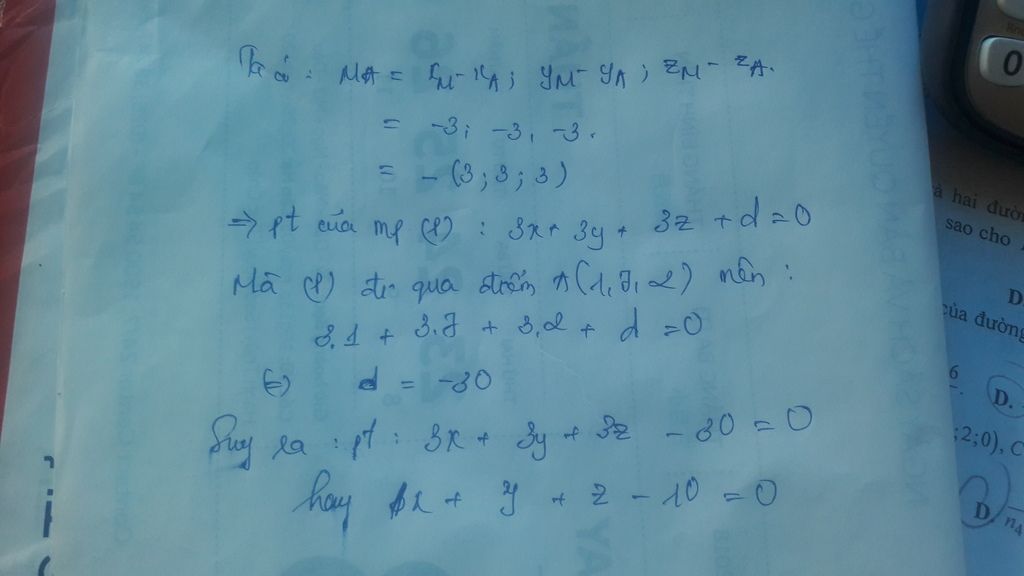 Ta có : MA = xM - xA ; yM - yA ; zM - zA.
= -3; -3, -3.
= - (3 ; 3 ; 3)
=> pt của mp (P) : 3x + 3y + 3z + d = 0
Mà (P) đi qua điểm A(1,7,2) nên :
3.1 + 3.7 + 3.2 + d = 0
(=) d = -30
Suy ra : pt : 3x + 3y + 3z - 30 = 0
hay x + y + z - 10 = 0
0
à hai đườn
sao cho
D.
của đường
6
D.
;2;0), C
D. n4